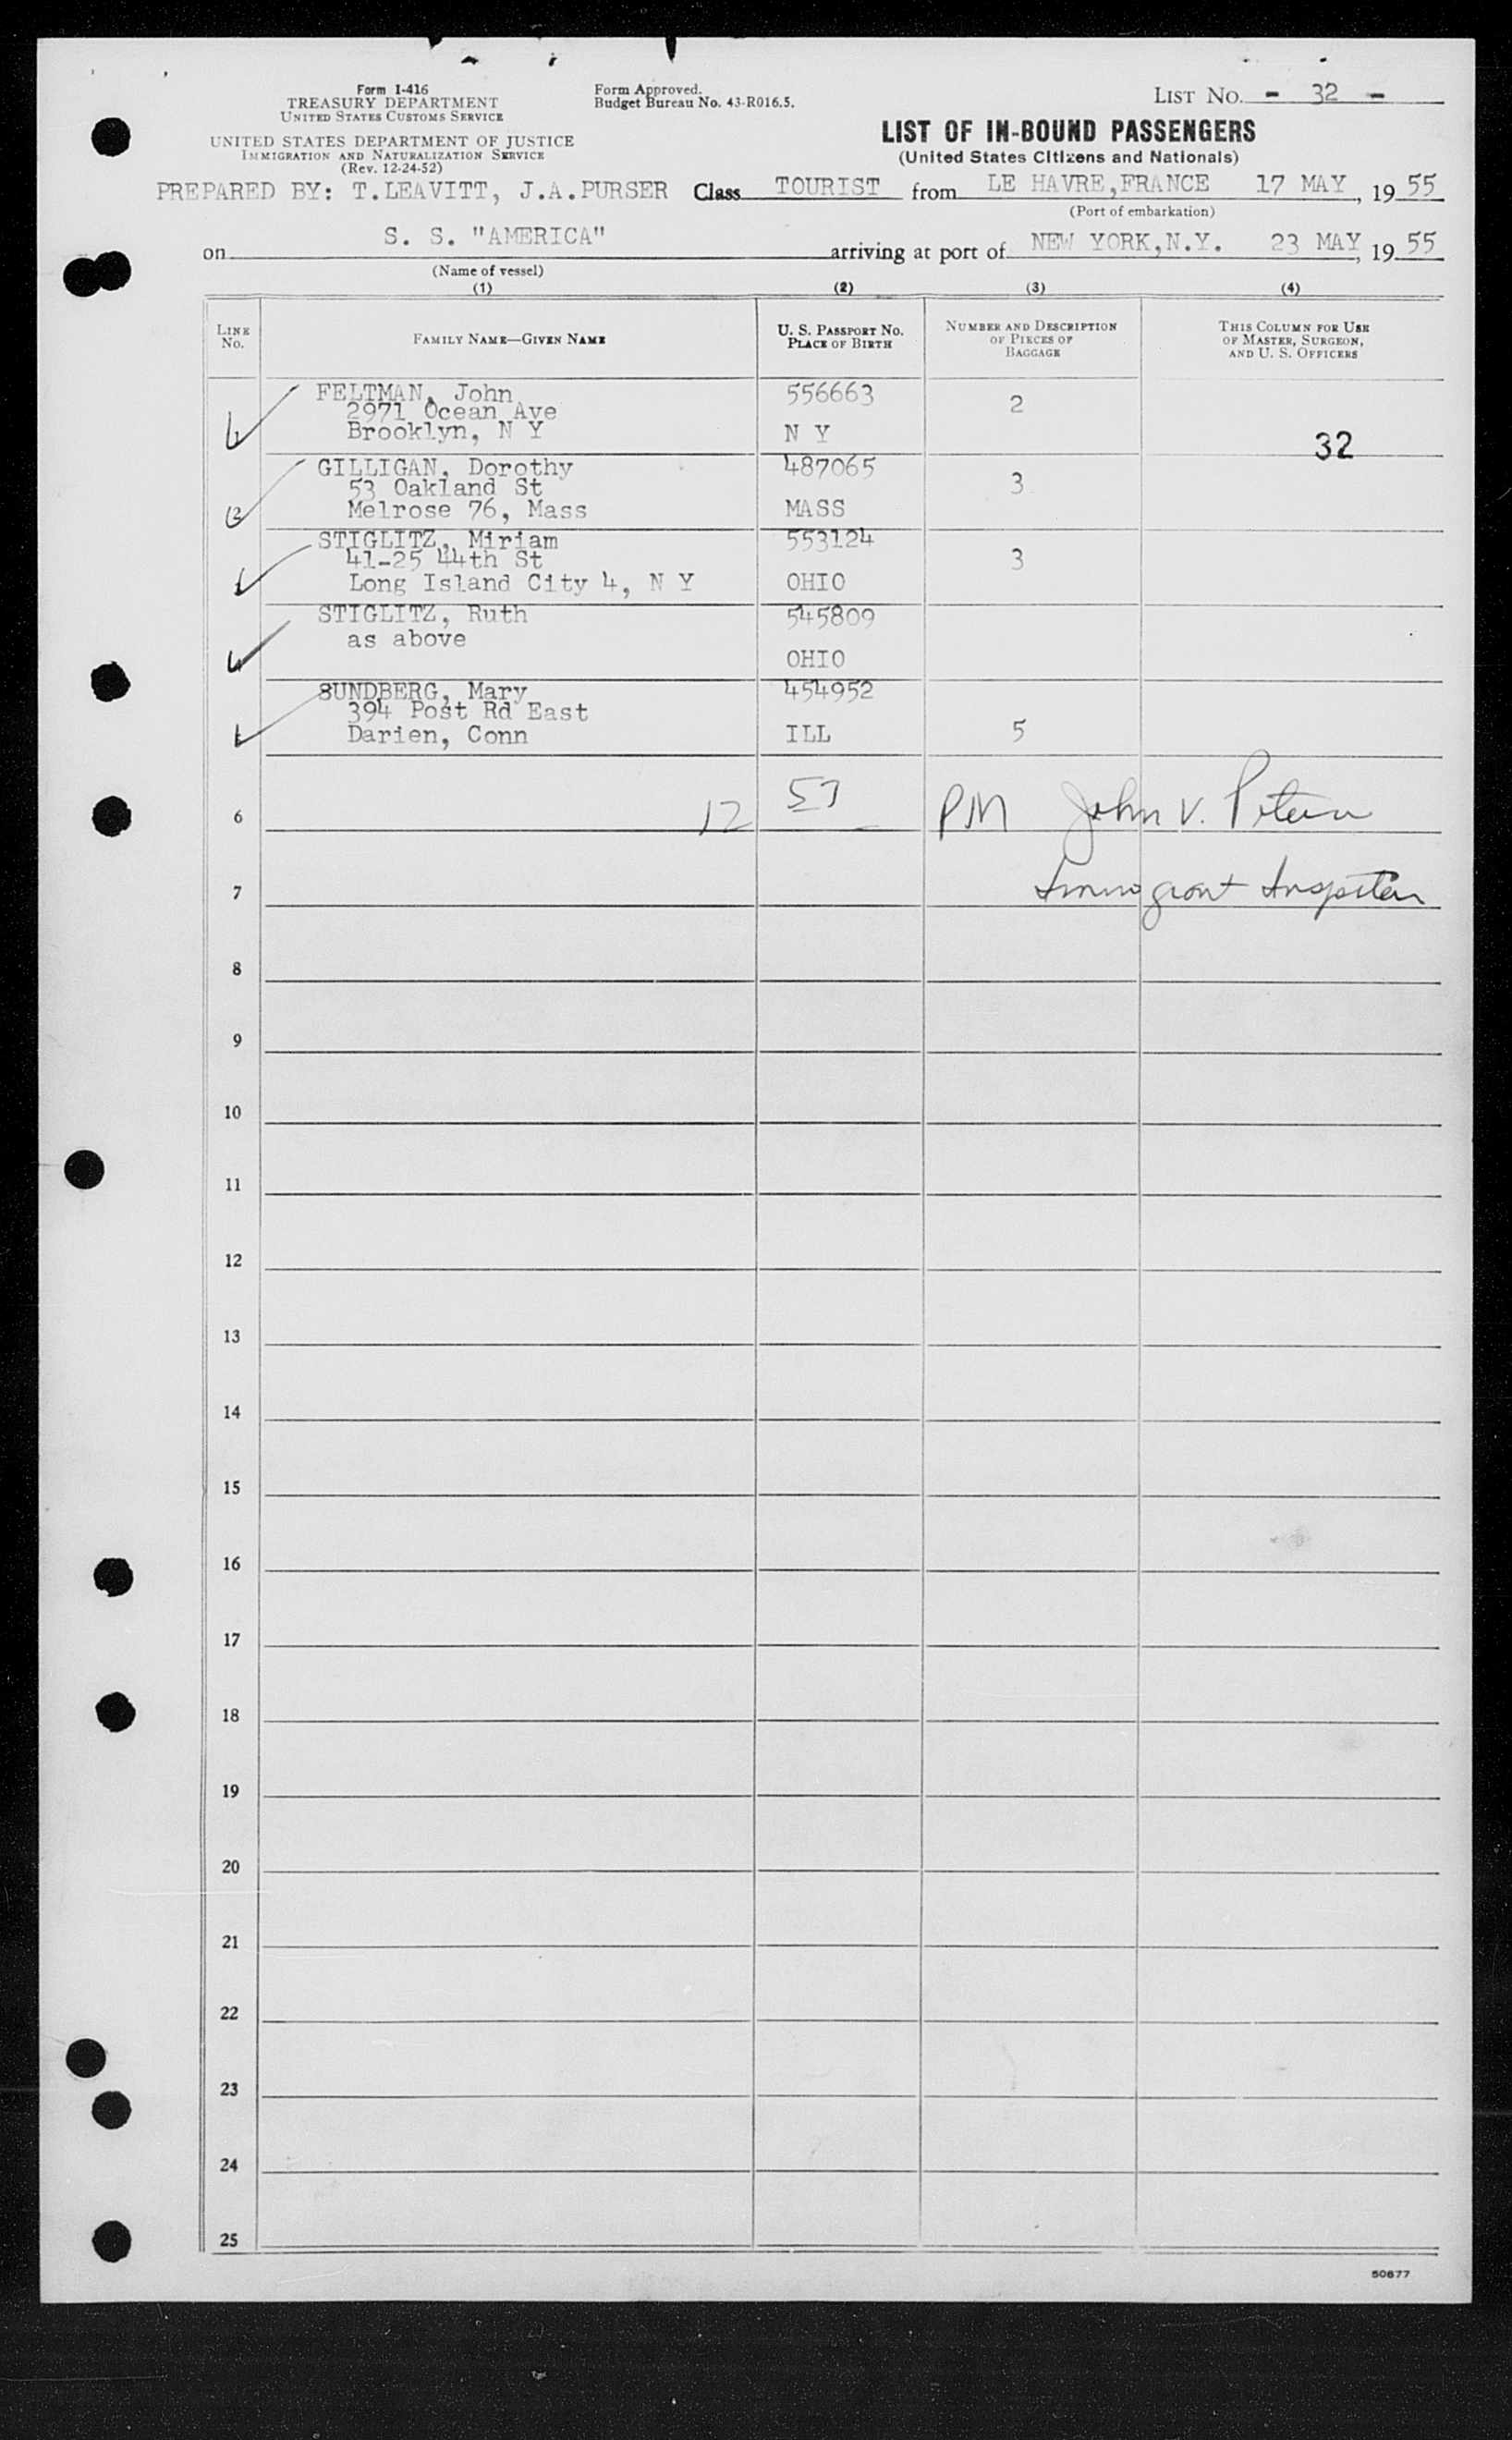 Form I-416
TREASURY DEPARTMENT
UNITED STATES CUSTOMS SERVICE
UNITED STATES DEPARTMENT OF JUSTICE
IMMIGRATION AND NATURALIZATION SERVICE
(Rev. 12-24-52)
Form Approved.
Budget Bureau No. 43-R016.5.
LIST NO. - 32 -
LIST OF IN-BOUND PASSENGERS
(United States Citizens and Nationals)
PREPARED BY: T.LEAVITT, J.A.PURSER Class TOURIST from LE HAVRE,FRANCE 17 MAY, 1955
(Port of embarkation)
on S. S. "AMERICA" arriving at port of NEW YORK,N.Y. 23 MAY, 1955
(Name of vessel)
(1) (2) (3) (4)
LINE No.
FAMILY NAME—GIVEN NAME
U. S. PASSPORT NO.
PLACE OF BIRTH
NUMBER AND DESCRIPTION
OF PIECES OF
BAGGAGE
THIS COLUMN FOR USE
OF MASTER, SURGEON,
AND U. S. OFFICERS
FELTMAN, John 556663
2971 Ocean Ave 2
Brooklyn, N Y N Y
32
GILLIGAN, Dorothy 487065
53 Oakland St 3
Melrose 76, Mass MASS
STIGLITZ, Miriam 553124
41-25 44th St 3
Long Island City 4, N Y OHIO
STIGLITZ, Ruth 545809
as above
OHIO
SUNDBERG, Mary 454952
394 Post Rd East
Darien, Conn ILL 5
6 12 57 PM John V.
7 Immigrant Inspector
8
9
10
11
12
13
14
15
16
17
18
19
20
21
22
23
24
25
50677